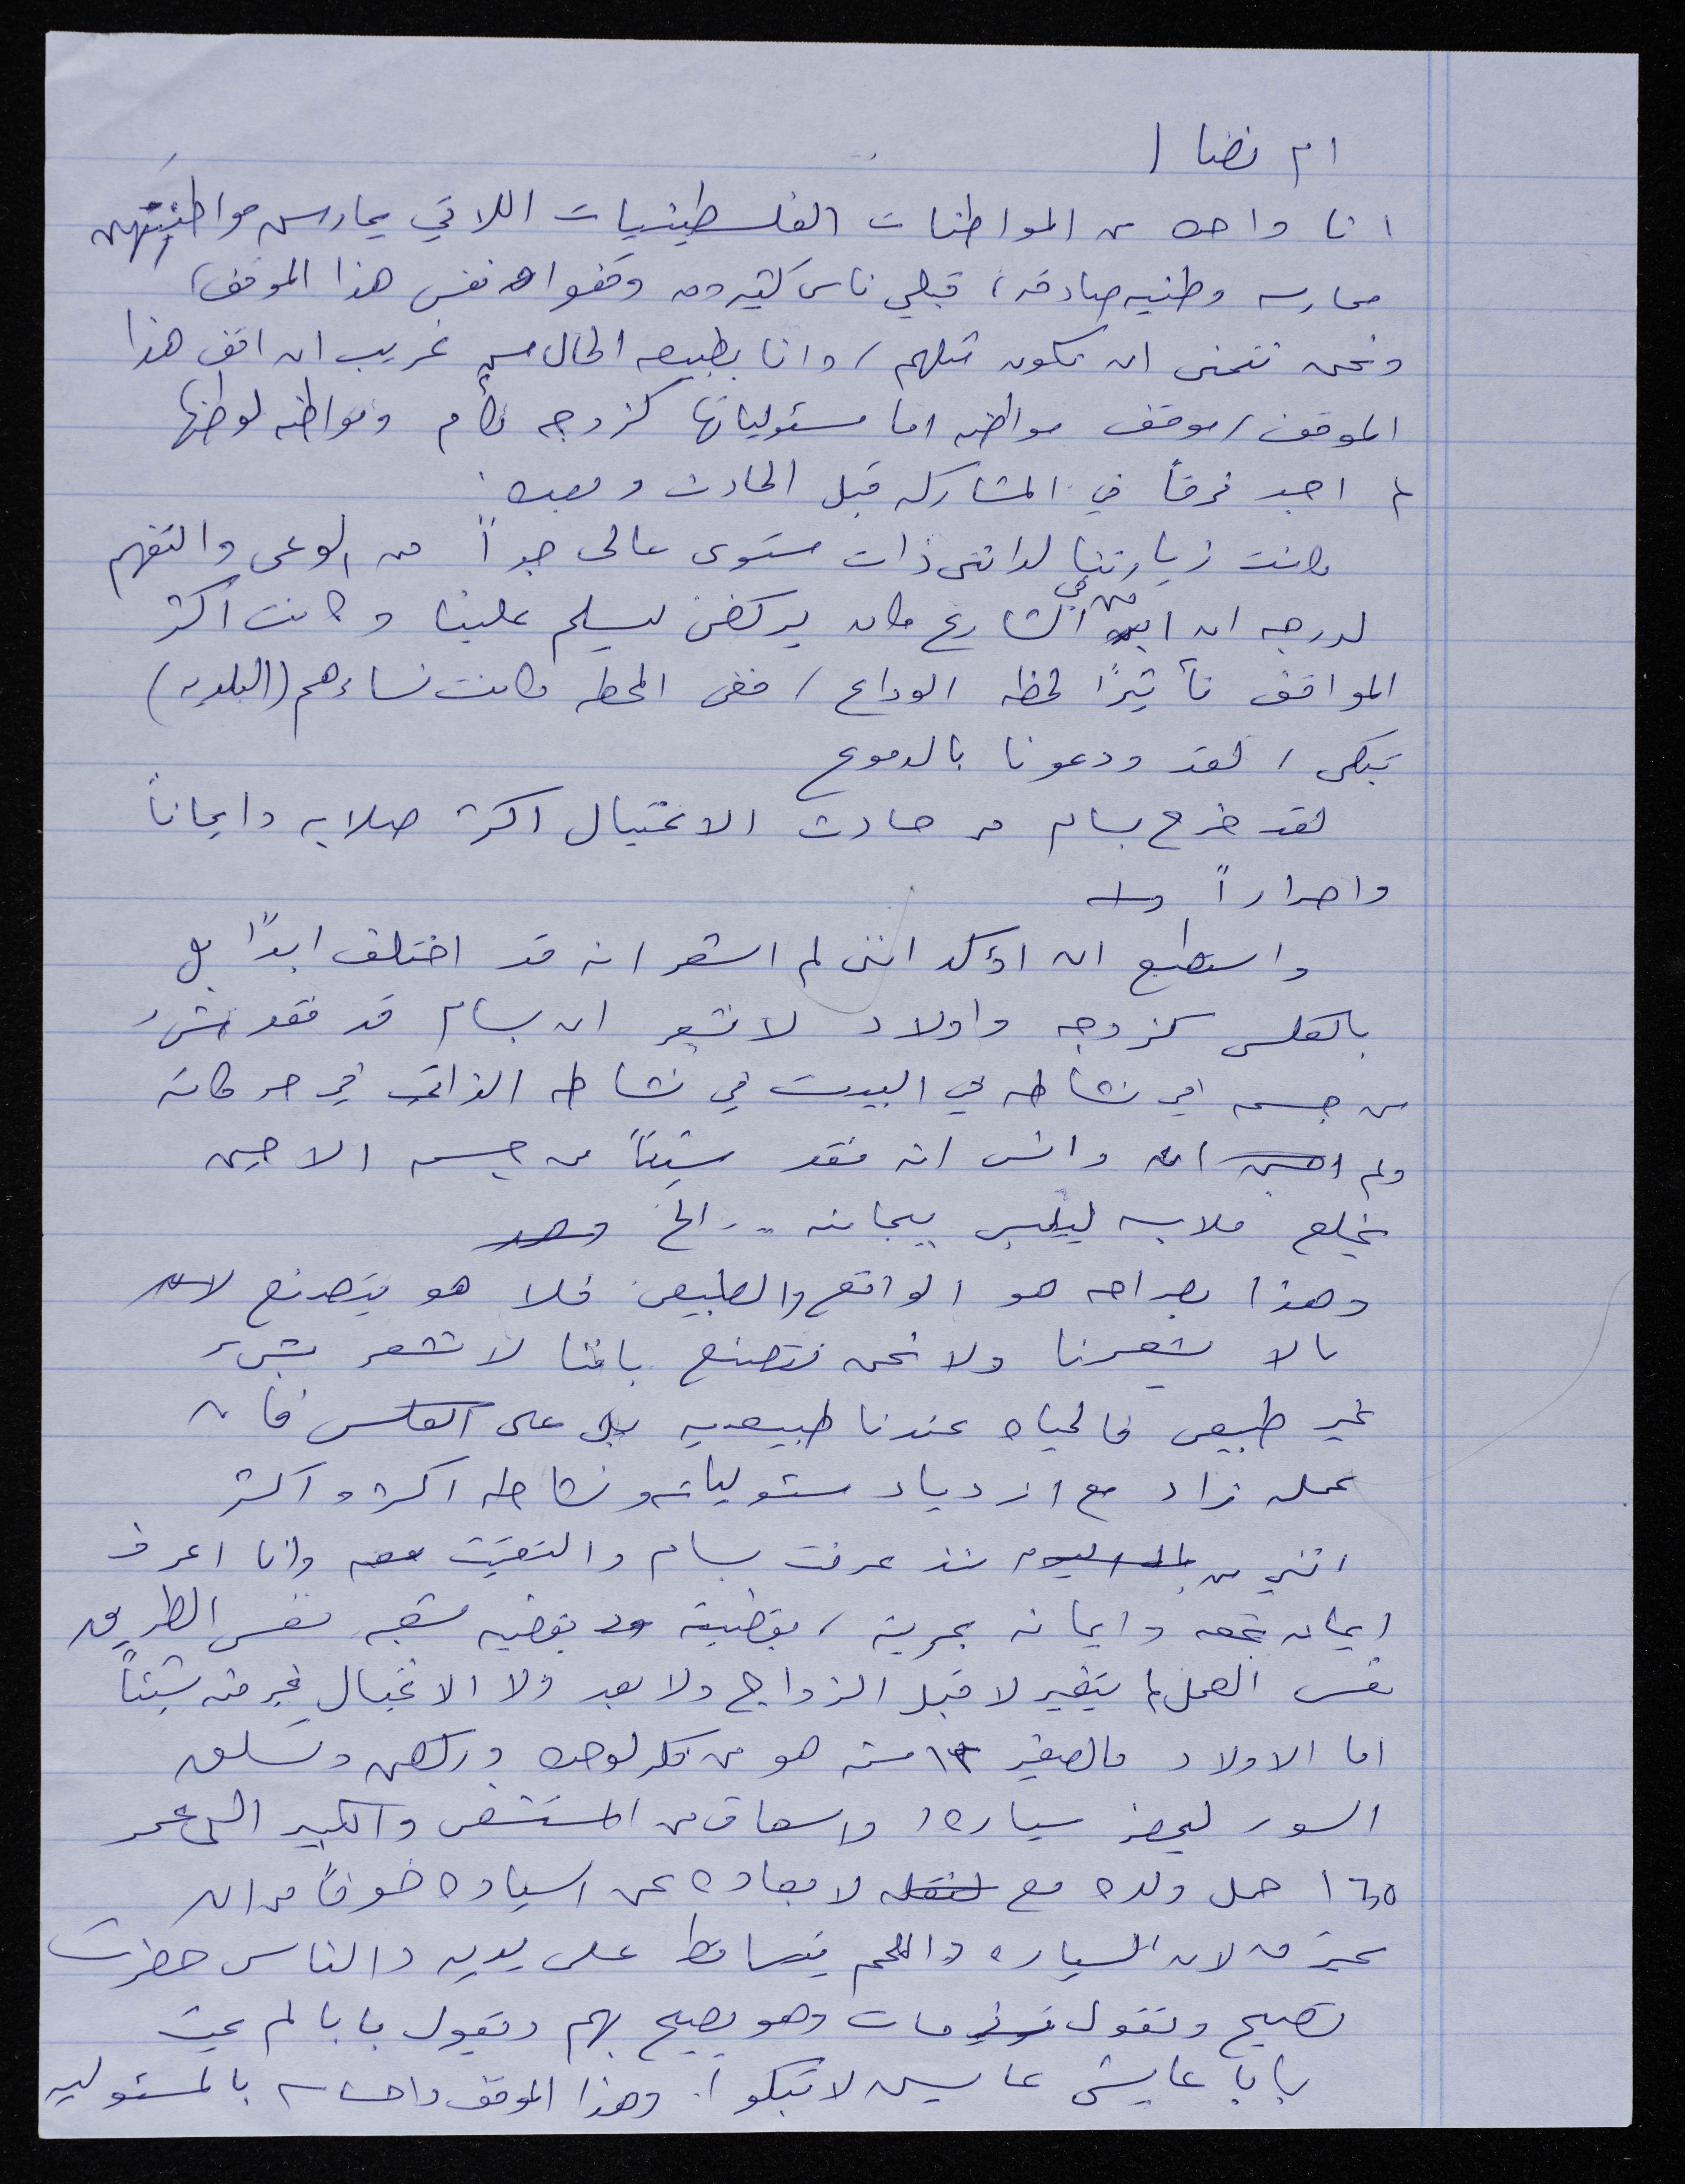 ام نضا ل
انا واحده من المواطنات الفلسطينيات اللاتي يمارسن مواطنيتهن
ممارسه وطنيه صادقه، قبلي ناس كثيرون وقفوا نفس هذا الموقف،
ونحن نتمنى ان نكون مثلهم، وانا بطبيعه الحال مس غريب ان اقف هذا
الموقف، موقف مواطنه اما مسئولياتها كزوجه كأم ومواطنه لوطنها
لم اجد فرقاً في المشاركه قبل الحادث وبعده.
كانت زيارتنا لدانتى ذات مستوى عالى جداً من الوعى والتفهم
لدرجه ان من في الشارع كان يركض ليسلم علينا وكانت اكثر
المواقف تأثيرًا لحظه الوداع، ففى المحطه كانت نساءهم (البلديه)
تبكى، لقد ودعونا بالدموع
لقد خرج بسام من حادث الاغتيال اكثر صلابه وايماناً
واصراراً
واستطيع ان اؤكد اننى لم اشعر انه قد اختلف ابدًا بل
بالعكس كزوجه واولاد لا نشعر ان بسام قد فقد شىء
من جسمه في نشاطه في البيت في نشاطه الذاتي في حركاته
ولم وانسى انه فقد شيئاً من جسمه الا حين
يخلع ملابسه ليلبس بيجامته .. الخ
وهذا بصراحه هو الواقع والطبيعى فلا هو يتصنع
بالا يشعرنا ولا نحن نتصنع باننا لا نشعر بشىء
غير طبيعى فالحياه عندنا طبيعيه بل على العكس فان
عمله زاد مع ازدياد مسئولياته ونشاطه اكثر واكثر
انني من منذ عرفت بسام والتقيت معه وانا اعرف
ايمانه بحقه وايمانه بحريته، بقضيته بقضيه شعبه نفس الطريق
نفس العمل لم يتغير لا قبل الزواج ولا بعد ولا الاغتيال غير منه شيئاً
اما الاولاد فالصغير ١٢ سنه هو من فكر لوحده وركض وتسلق
السور ليحضر سياره اسعاف من المستشفى والكبير اللى عمره
حمل ولده مع لابعاده عن السياره خوفاً من ان
تحترق لان السياره واللحم يتساقط على يديه والناس حضرت
تصيح وتقول مات وهو يصيح بهم ويقول بابا لم يمت
بابا عايش عايش لا تبكوا. وهذا الموقف واحساس بالمسئوليه